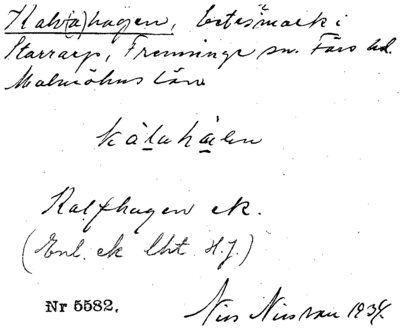 Kalv(a)hagen, betesmark i
Starrarp, Fränninge sn. Färs hd.
Malmöhus län
kàlahàlen
Kalfhagen ek.
(Enl. ek lht H.J.)
Nr 5582.
Nils Nilsson 1934.